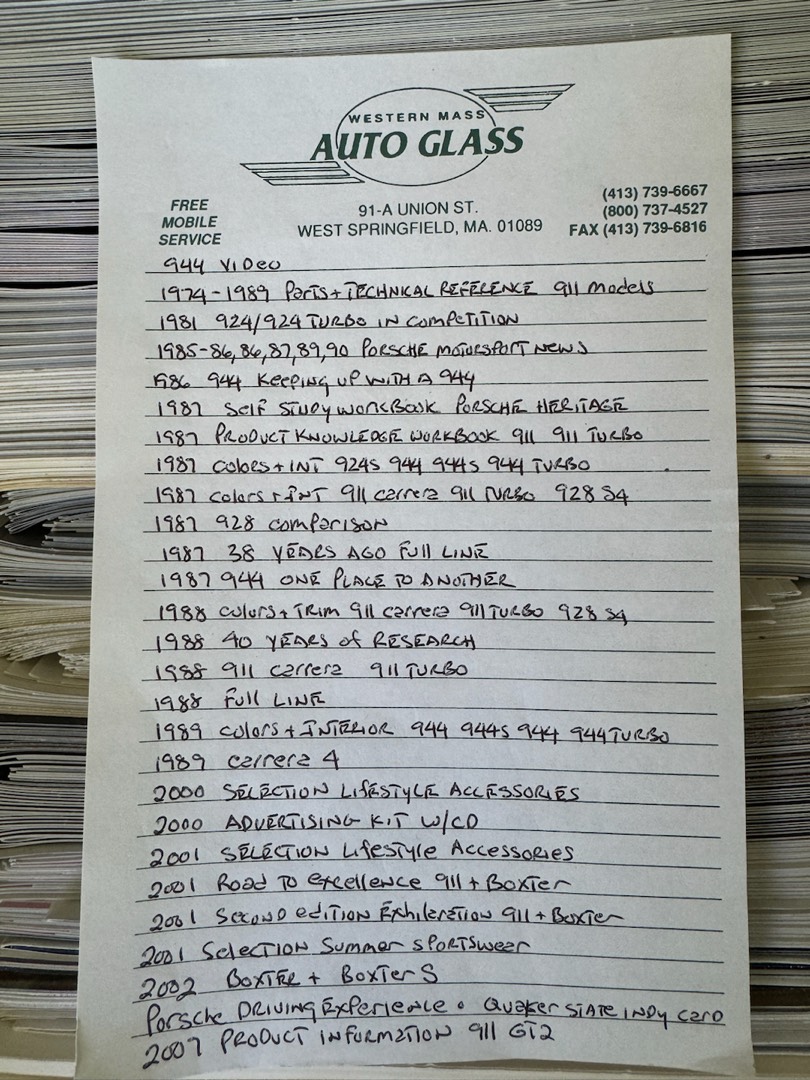 WESTERN MASS
AUTO GLASS
FREE
MOBILE
SERVICE
91-A UNION ST.
WEST SPRINGFIELD, MA. 01089
(413) 739-6667
(800) 737-4527
FAX (413) 739-6816
944 VIDEO
1974-1989 Parts + TECHNICAL REFERENCE 911 models
1981 924/924 TURBO IN COMPETITION
1985-86,86,87,89,90 PORSCHE MOTORSPORT NEWS
1986 944 Keeping UP WITH A 944
1987 Self STUDY WORKBOOK PORSCHE HERITAGE
1987 PRODUCT KNOWLEDGE WORKBOOK 911 911 TURBO
1987 colors + INT 924S 944 944S 944 TURBO
1987 colors + INT 911 carrera 911 TURBO 928 S4
1987 928 comparison
1987 38 YEARS AGO FULL LINE
1987 944 ONE PLACE TO ANOTHER
1988 colors + TRIM 911 carrera 911 TURBO 928 S4
1988 40 YEARS of RESEARCH
1988 911 carrera 911 TURBO
1988 FULL LINE
1989 colors + INTERIOR 944 944S 944 944 TURBO
1989 carrera 4
2000 SELECTION LIFESTYLE ACCESSORIES
2000 ADVERTISING KIT W/CD
2001 SELECTION Lifestyle Accessories
2001 Road To excellence 911 + Boxter
2001 Second edition Exhileration 911 + Boxter
2001 Selection Summer sportswear
2002 BOXTER + BOXTER S
Porsche DRIVING EXPERIENCE • Quaker STATE INDY CARD
2007 PRODUCT INFORMATION 911 GT2